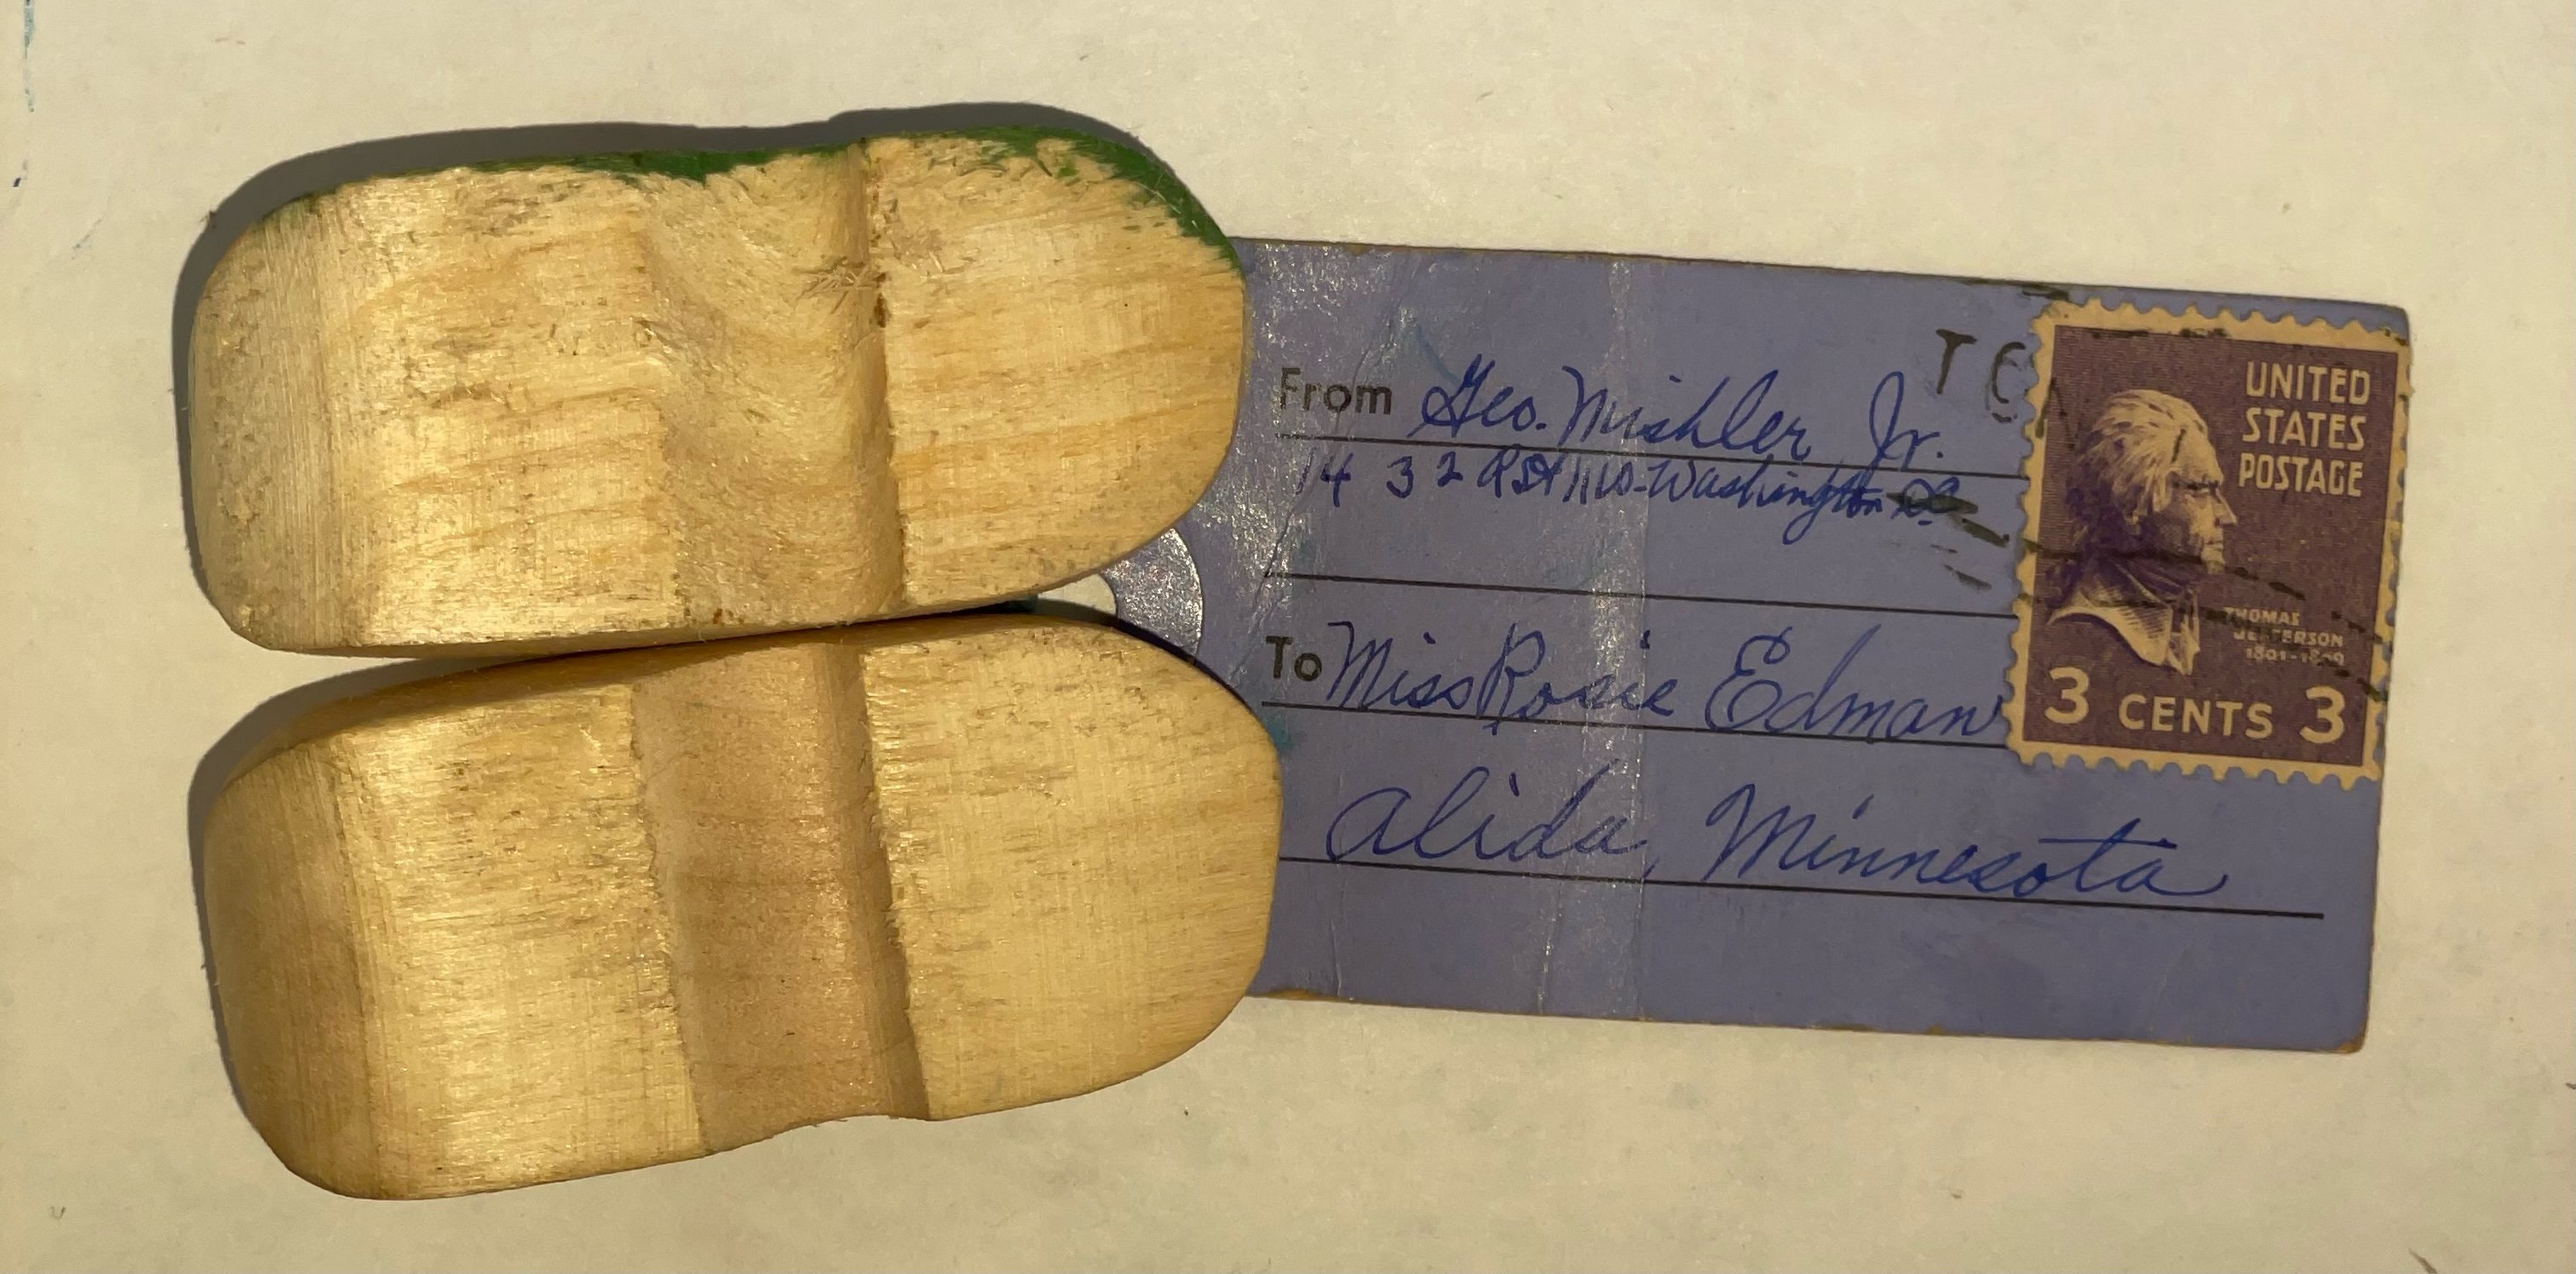 From Geo. Mishler Jr.
1432 R St NW - Washington D.C.
To Miss Rosie Edman
Alida, Minnesota
TON
UNITED
STATES
POSTAGE
THOMAS
JEFFERSON
1801-1809
3 CENTS 3